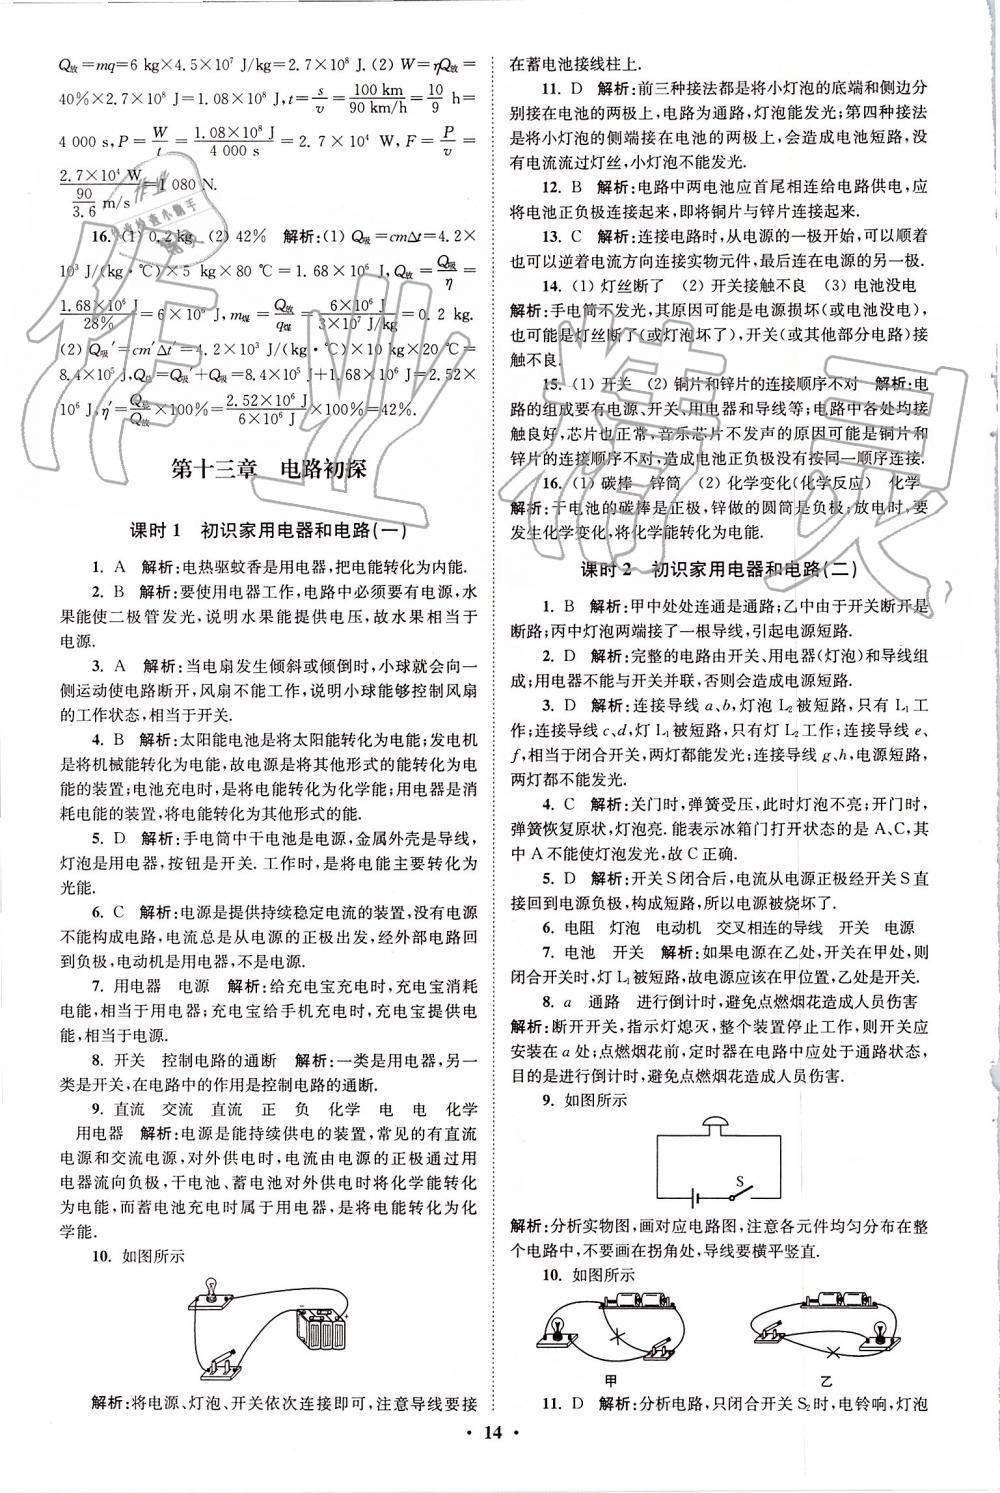 Q放=mq=6 kg×4.5×10⁷ J/kg=2.7×10⁸ J.(2) W=ηQ放=
40%×2.7×10⁸ J=1.08×10⁸ J,t=s/v=100 km/90 km/h=10/9 h=
4 000 s,P=W/t=1.08×10⁸ J/4 000 s=2.7×10⁴ W,F=P/v=
2.7×10⁴ W/(90/3.6 m/s)=1 080 N.
16. (1) 0.2 kg (2) 42% 解析:(1) Q吸=cmΔt=4.2×
10³ J/(kg·℃)×5 kg×80 ℃=1.68×10⁶ J,Q放=Q吸/η=
1.68×10⁶ J/28%=6×10⁶ J,m煤=Q放/q煤=6×10⁶ J/3×10⁷ J/kg=0.2 kg.
(2) Q吸′=cm′Δt′=4.2×10³ J/(kg·℃)×10 kg×20 ℃=
8.4×10⁵ J,Q总=Q吸′+Q吸=8.4×10⁵ J+1.68×10⁶ J=2.52×
10⁶ J,η′=Q总/Q放×100%=2.52×10⁶ J/6×10⁶ J×100%=42%.
第十三章 电路初探
课时1 初识家用电器和电路(一)
1. A 解析:电热驱蚊香是用电器,把电能转化为内能.
2. B 解析:要使用电器工作,电路中必须要有电源,水
果能使二极管发光,说明水果能提供电压,故水果相当于
电源.
3. A 解析:当电扇发生倾斜或倾倒时,小球就会向一
侧运动使电路断开,风扇不能工作,说明小球能够控制风扇
的工作状态,相当于开关.
4. B 解析:太阳能电池是将太阳能转化为电能;发电机
是将机械能转化为电能,故电源是将其他形式的能转化为电
能的装置;电池充电时,是将电能转化为化学能;用电器是消
耗电能的装置,将电能转化为其他形式的能.
5. D 解析:手电筒中干电池是电源,金属外壳是导线,
灯泡是用电器,按钮是开关.工作时,是将电能主要转化为
光能.
6. C 解析:电源是提供持续稳定电流的装置,没有电源
不能构成电路,电流总是从电源的正极出发,经外部电路回
到负极,电动机是用电器,不是电源.
7. 用电器 电源 解析:给充电宝充电时,充电宝消耗
电能,相当于用电器;充电宝给手机充电时,充电宝提供电
能,相当于电源.
8. 开关 控制电路的通断 解析:一类是用电器,另一
类是开关,在电路中的作用是控制电路的通断.
9. 直流 交流 直流 正 负 化学 电 电 化学
用电器 解析:电源是能持续供电的装置,常见的有直流
电源和交流电源,对外供电时,电流由电源的正极通过用
电器流向负极,干电池、蓄电池对外供电时将化学能转化
为电能,而蓄电池充电时属于用电器,是将电能转化为化
学能.
10. 如图所示
解析:将电源、灯泡、开关依次连接即可,注意导线要接
在蓄电池接线柱上.
11. D 解析:前三种接法都是将小灯泡的底端和侧边分
别接在电池的两极上,电路为通路,灯泡能发光;第四种接法
是将小灯泡的侧端接在电池的两极上,会造成电池短路,没
有电流流过灯丝,小灯泡不能发光.
12. B 解析:电路中两电池应首尾相连给电路供电,应
将电池正负极连接起来,即将铜片与锌片连接起来.
13. C 解析:连接电路时,从电源的一极开始,可以顺着
也可以逆着电流方向连接实物元件,最后连在电源的另一极.
14. (1) 灯丝断了 (2) 开关接触不良 (3) 电池没电
解析:手电筒不发光,其原因可能是电源损坏(或电池没电),
也可能是灯丝断了(或灯泡坏了),开关(或其他部分电路)接
触不良.
15. (1) 开关 (2) 铜片和锌片的连接顺序不对 解析:电
路的组成要有电源、开关、用电器和导线等;电路中各处均接
触良好,芯片也正常,音乐芯片不发声的原因可能是铜片和
锌片的连接顺序不对,造成电池正负极没有按同一顺序连接.
16. (1) 碳棒 锌筒 (2) 化学变化(化学反应) 化学
解析:干电池的碳棒是正极,锌做的圆筒是负极;放电时,要
发生化学变化,将化学能转化为电能.
课时2 初识家用电器和电路(二)
1. B 解析:甲中处处连通是通路;乙中由于开关断开是
断路;丙中灯泡两端接了一根导线,引起电源短路.
2. D 解析:完整的电路由开关、用电器(灯泡)和导线组
成;用电器不能与开关并联,否则会造成电源短路.
3. D 解析:连接导线a、b,灯泡L₂被短路,只有L₁工
作;连接导线c、d,灯L₁被短路,只有灯L₂工作;连接导线e、
f,相当于闭合开关,两灯都能发光;连接导线g、h,电源短路,
两灯都不能发光.
4. C 解析:关门时,弹簧受压,此时灯泡不亮;开门时,
弹簧恢复原状,灯泡亮.能表示冰箱门打开状态的是A、C,其
中A不能使灯泡发光,故C正确.
5. D 解析:开关S闭合后,电流从电源正极经开关S直
接回到电源负极,构成短路,所以电源被烧坏了.
6. 电阻 灯泡 电动机 交叉相连的导线 开关 电源
7. 电池 开关 解析:如果电源在乙处,开关在甲处,则
闭合开关时,灯L₁被短路,故电源应该在甲位置,乙处是开关.
8. a 通路 进行倒计时,避免点燃烟花造成人员伤害
解析:断开开关,指示灯熄灭,整个装置停止工作,则开关应
安装在a处;点燃烟花前,定时器在电路中应处于通路状态,
目的是进行倒计时,避免点燃烟花造成人员伤害.
9. 如图所示
S
解析:分析实物图,画对应电路图,注意各元件均匀分布在整
个电路中,不要画在拐角处,导线要横平竖直.
10. 如图所示
甲 乙
11. D 解析:分析电路,只闭合开关S₂时,电铃响,灯泡
• 14 •
作业精灵